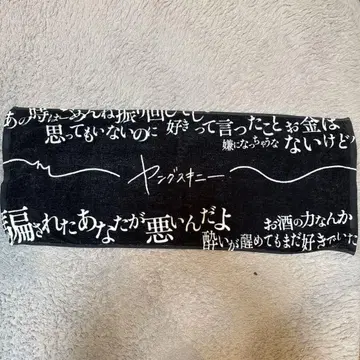 あの時はごめんね振り回して
思ってもいないのに 好きって言ったこと お金は
嫌になっちゃうな ないけど
ヤングスキニー
騙されたあなたが悪いんだよ
お酒の力なんか
酔いが醒めてもまだ好きでいた